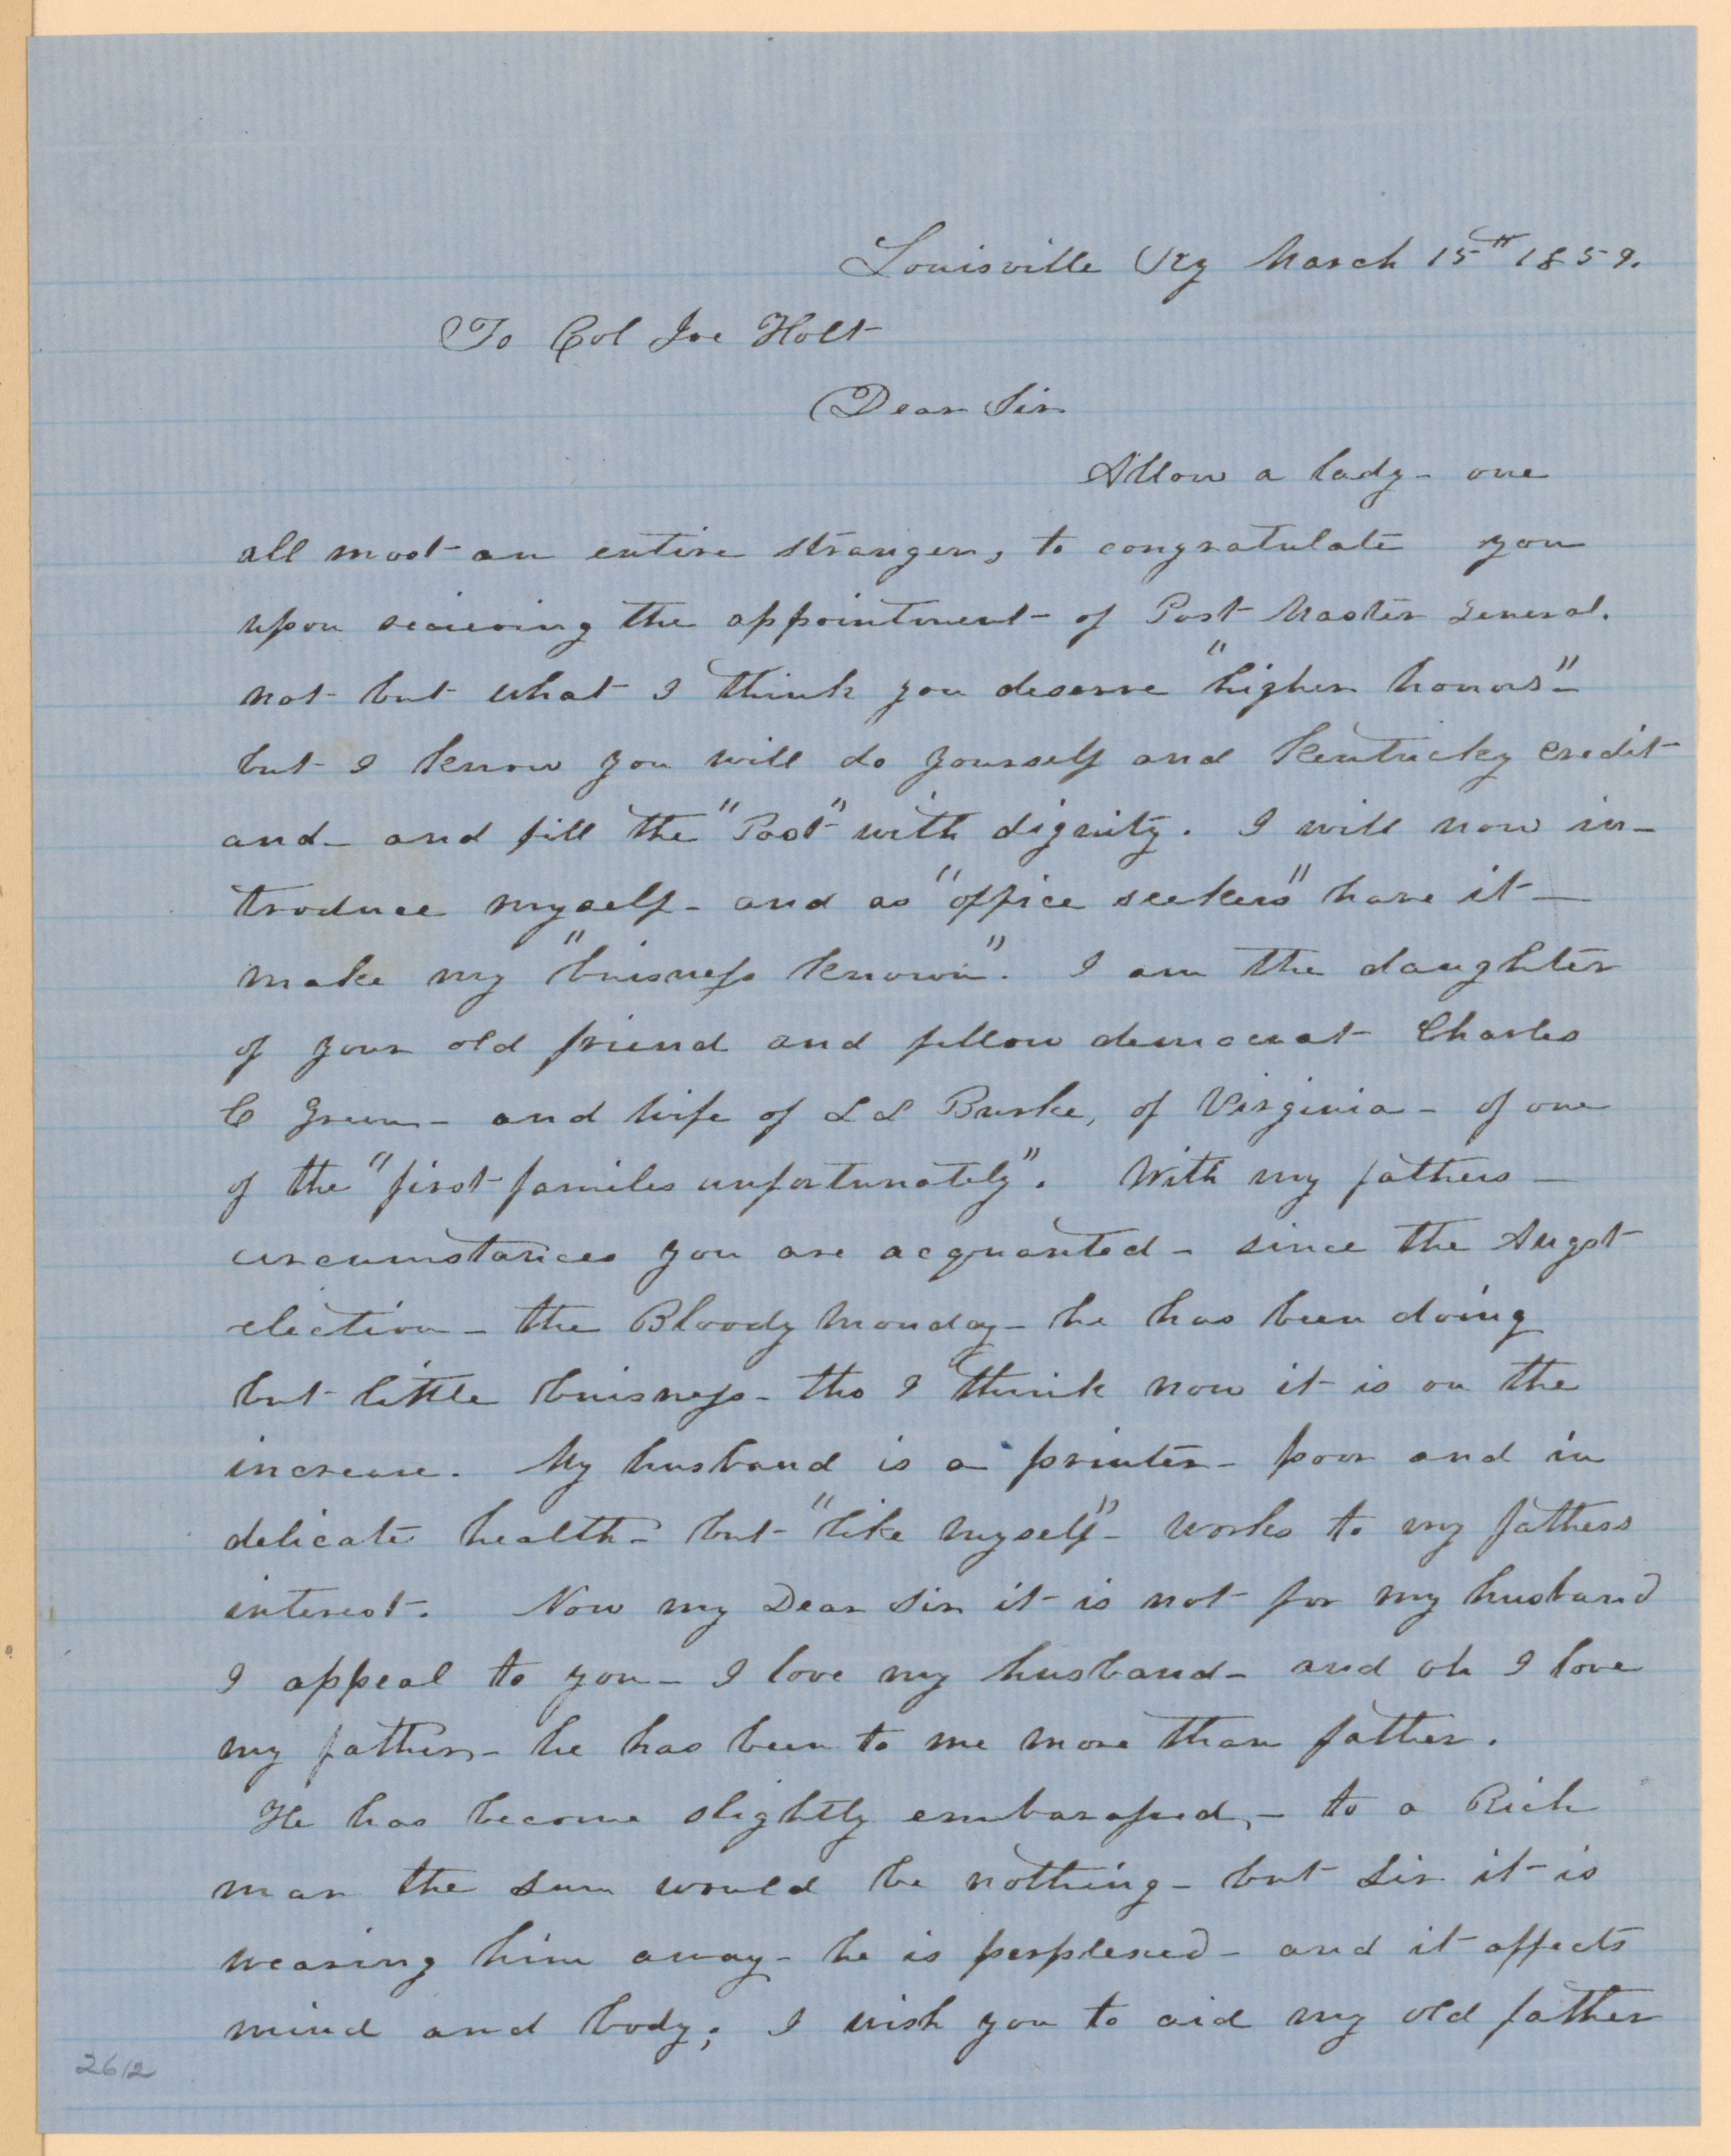 Louisville Ky March 15th 1859.
To Col Joe Holt
Dear Sir
Allow a lady - one
all most an entire stranger, to congratulate you
upon recieving the appointment of Post Master General.
not but what I think you deserve "higher honors" -
but I know you will do yourself and Kentucky credit
and - and fill the "Post" with dignity. I will now in-
troduce myself - and as "office seekers" have it -
make my "buisness known". I am the daughter
of your old friend and fellow democrat Charles
C Green - and wife of L L Burke, of Virginia - of one
of the "first familes unfortunately". With my fathers -
circumstances you are acquanted - since the Augst
election - the Bloody Monday - he has been doing
but little buisness - tho I think now it is on the
increase. My husband is a printer - poor and in
delicate health - but "like myself" - works to my fathers
interest. Now my Dear Sir it is not for my husband
I appeal to you - I love my husband - and oh I love
my father - he has been to me more than father.
He has become slightly embarassed, - to a Rich
man the sum would be nothing - but Sir it is
wearing him away - he is perplexed - and it affects
mind and body; I wish you to aid my old father
2612